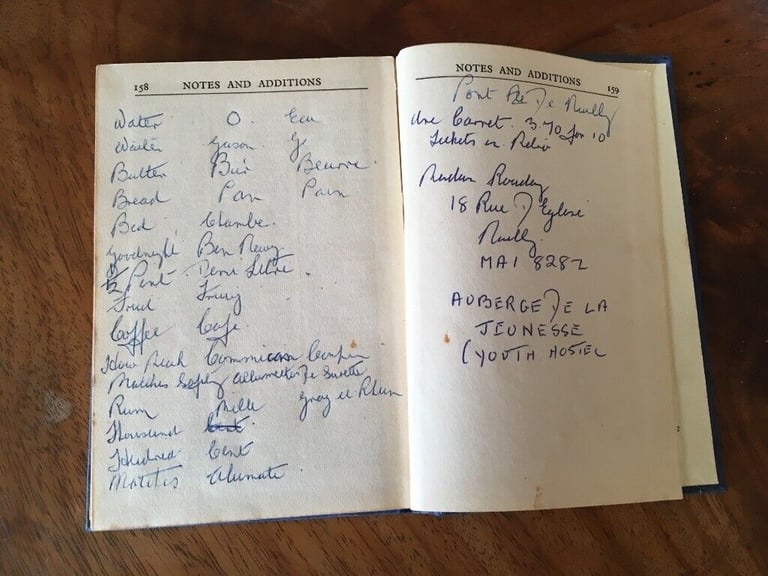 158 NOTES AND ADDITIONS
Water O. Eau
Waiter Gason G
Butter Bur Beurre.
Bread Pan Pain
Bed Chambe.
Goodnight Bon Newy
½ Pint Demi Litre.
Fruit Fruy
Coffee Cafe.
How Much Commican Comfien
Matches Safety allumettes De Surette
Rum Mille Grog et Rhum
Thousand Cent
Hundred Cent
Matches Alumate.
NOTES AND ADDITIONS 159
Pont De Neuilly
Une Carnet. 3.70 for 10
Tickets in Metro
18 Rue D Eglise
Neuilly
MAI 8282
AUBERGE DE LA
JEUNESSE
(YOUTH HOSTEL
2